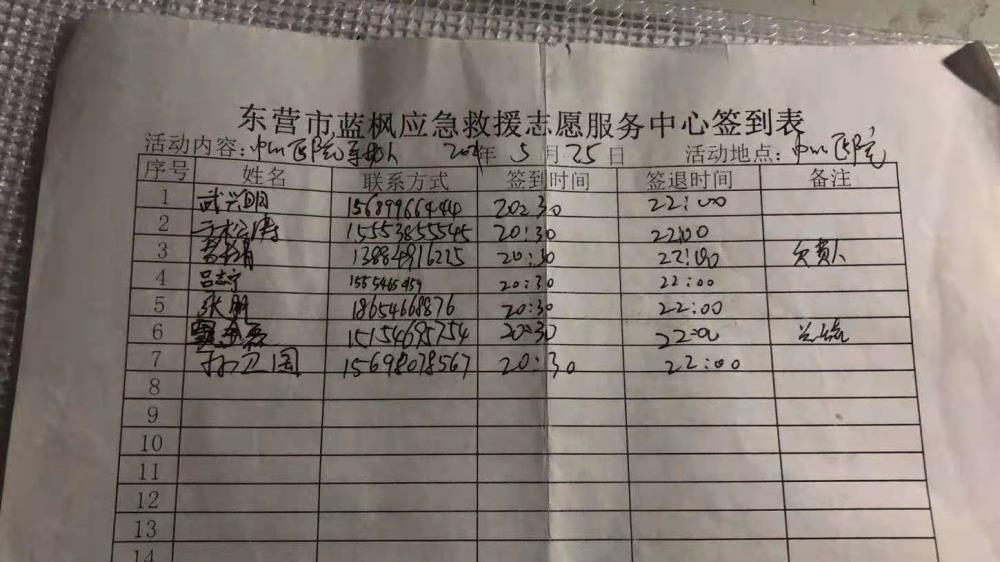 东营市蓝枫应急救援志愿服务中心签到表
活动内容: 年 5 月 25 日 活动地点:
序号 姓名 联系方式 签到时间 签退时间 备注
1 武兴明 15689966444 2030 22:00
2 15553855545 20:30 22:00
3 13884916225 20:30 22:00
4 吕志宁 20:30 22:00
5 张朋 18654668876 20:30 22:00
6 15154695754 20:30 22:00
7 孙卫国 15698078567 20:30 22:00
8
9
10
11
12
13
14